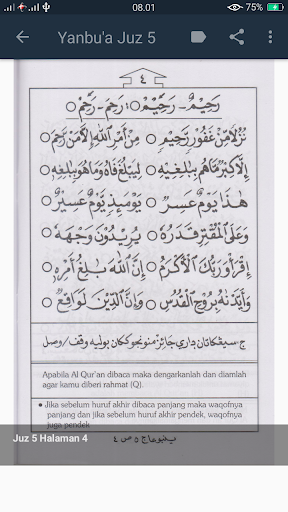 08.01
75%
Yanbu'a Juz 5
٤
رَحِيْمٌ - رَحِيْمْ ○ رَحِمَ - رَحِمْ ○
نُزُلًا مِنْ غَفُوْرٍ رَحِيْمٍ ○ مِنْ أَمْرِ اللهِ إِلَّا مَنْ رَحِمَ ○
إِلَّا كِبْرٌ مَّاهُمْ بِبَالِغِيْهِ ○ لِيَبْلُغَ فَاهُ وَمَا هُوَ بِبَالِغِهِ ○
هٰذَا يَوْمٌ عَسِرٌ ○ يَوْمَئِذٍ يَوْمٌ عَسِيْرٌ ○
وَعَلَى الْمُقْتِرِ قَدَرُهُ ○ يُرِيْدُوْنَ وَجْهَهُ ○
إِقْرَأْ وَرَبُّكَ الْأَكْرَمُ ○ إِنَّ اللهَ بَالِغُ أَمْرِهِ ○
وَأَيَّدْنٰهُ بِرُوْحِ الْقُدُسِ ○ وَإِنَّ الدِّيْنَ لَوَاقِعٌ ○
Apabila Al Qur'an dibaca maka dengarkanlah dan diamlah
agar kamu diberi rahmat (Q).
● Jika sebelum huruf akhir dibaca panjang maka waqofnya
panjang dan jika sebelum huruf akhir pendek, waqofnya
juga pendek
Juz 5 Halaman 4